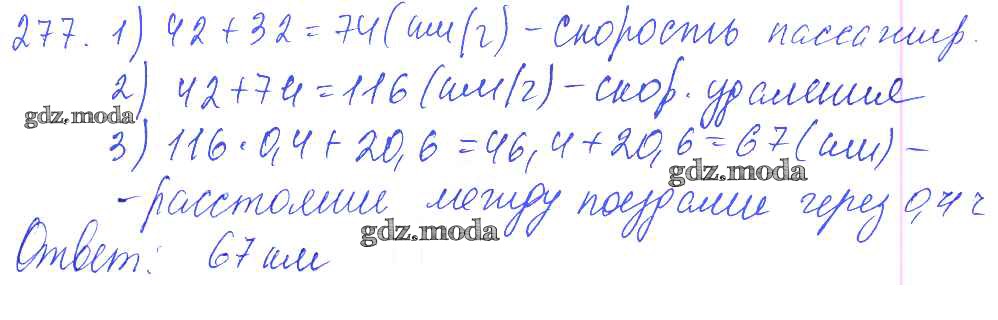 277. 1) 42 + 32 = 74 (км/ч) - скорость пассажир.
2) 42 + 74 = 116 (км/ч) - скор. удаления
gdz.moda
3) 116 · 0,4 + 20,6 = 46,4 + 20,6 = 67 (км) -
gdz.moda
- расстояние между поездами через 0,4 ч
gdz.moda
Ответ: 67 км